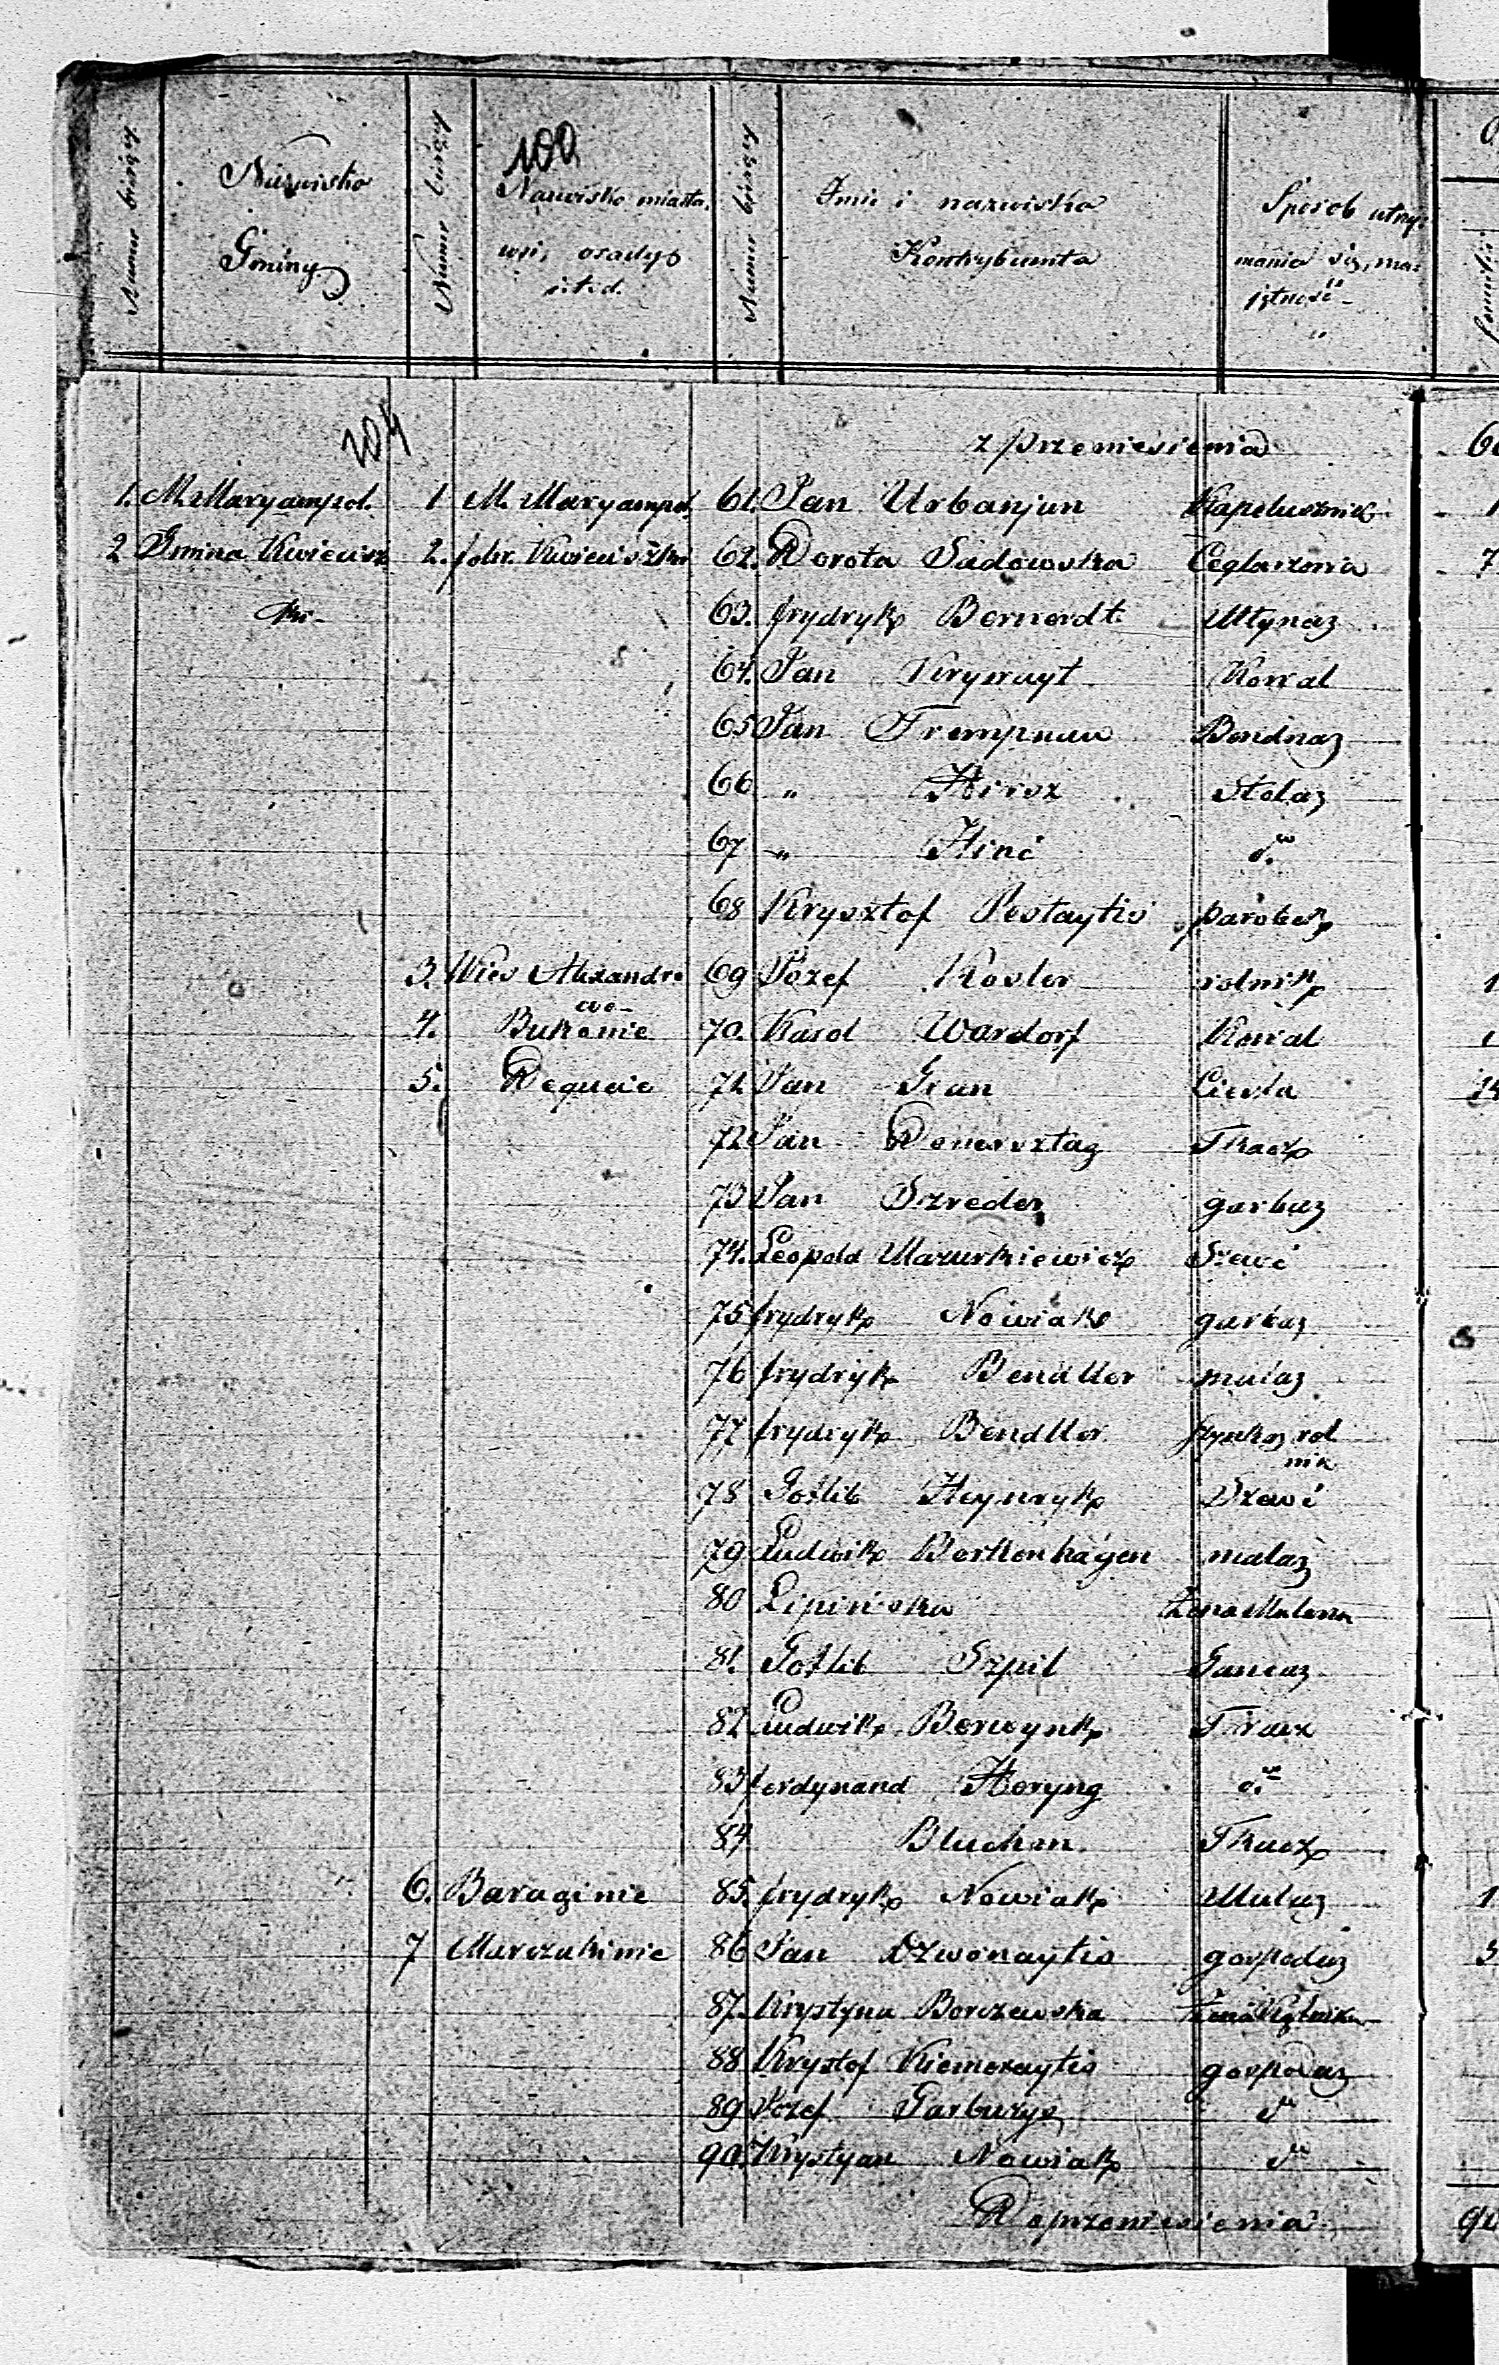 Numer bieżący Nazwisko Gminy Numer bieżący 100 Nazwisko miasta, wsi, osady i.t.d. Numer bieżący Imie i nazwiska Kontrybuenta Sposob utrzymania się, majętność
104
z przeniesienia 60
1. M. Maryampol. 1 M. Maryampol. 61. Jan Urbanjun Kapelusznik 1
2 Gmina Kwieciszki 2. folw. Kwieciszki 62. Dorota Sadowska Ceglarzonia 7
63. frydryk Bernerdt Młynaz
64. Jan Krywayt Kowal
65 Jan Trempnau Bendnaz
66 " Hirsz Stolaz
67 " Hinc do
68 Krysztof Pestaytis parobek
3. Wies Alexandrowo 69 Jozef Kosler rolnik 1
4. Bukonie 70. Karol Wardorf Kowal 1
5. Degucie 71 Jan Gran Ciesla 14
72 Jan Donersztag Tkacz
73 Jan Szreder garbaz
74. Leopold Mazurkiewicz Szewc
75 frydryk Nowiak garbaz
76 frydryk Bendller malaz
77 frydryk Bendller szynkaz rolnik
78 Gotlib Heynryk Szewc
79 Ludwik Borkenhagen malaz
80 Lipińska Żona Malarza
81. Gotlib Szpil Gancaz
82 Ludwik Berwynk Tkacz
83 ferdynand Heryng do
84. Bluchen Tkacz
6. Baraginie 85. frydryk Nowiak Mulaz 1
7 Marczukinie 86 Jan Dzwonaytis gospodaz 5
87. Krystyna Borczewska
88 Krysztof Kiemeraytis gospodaz
89 Jozef Garburys do
90. Krystyan Nowiak do
Do przeniesienia 90